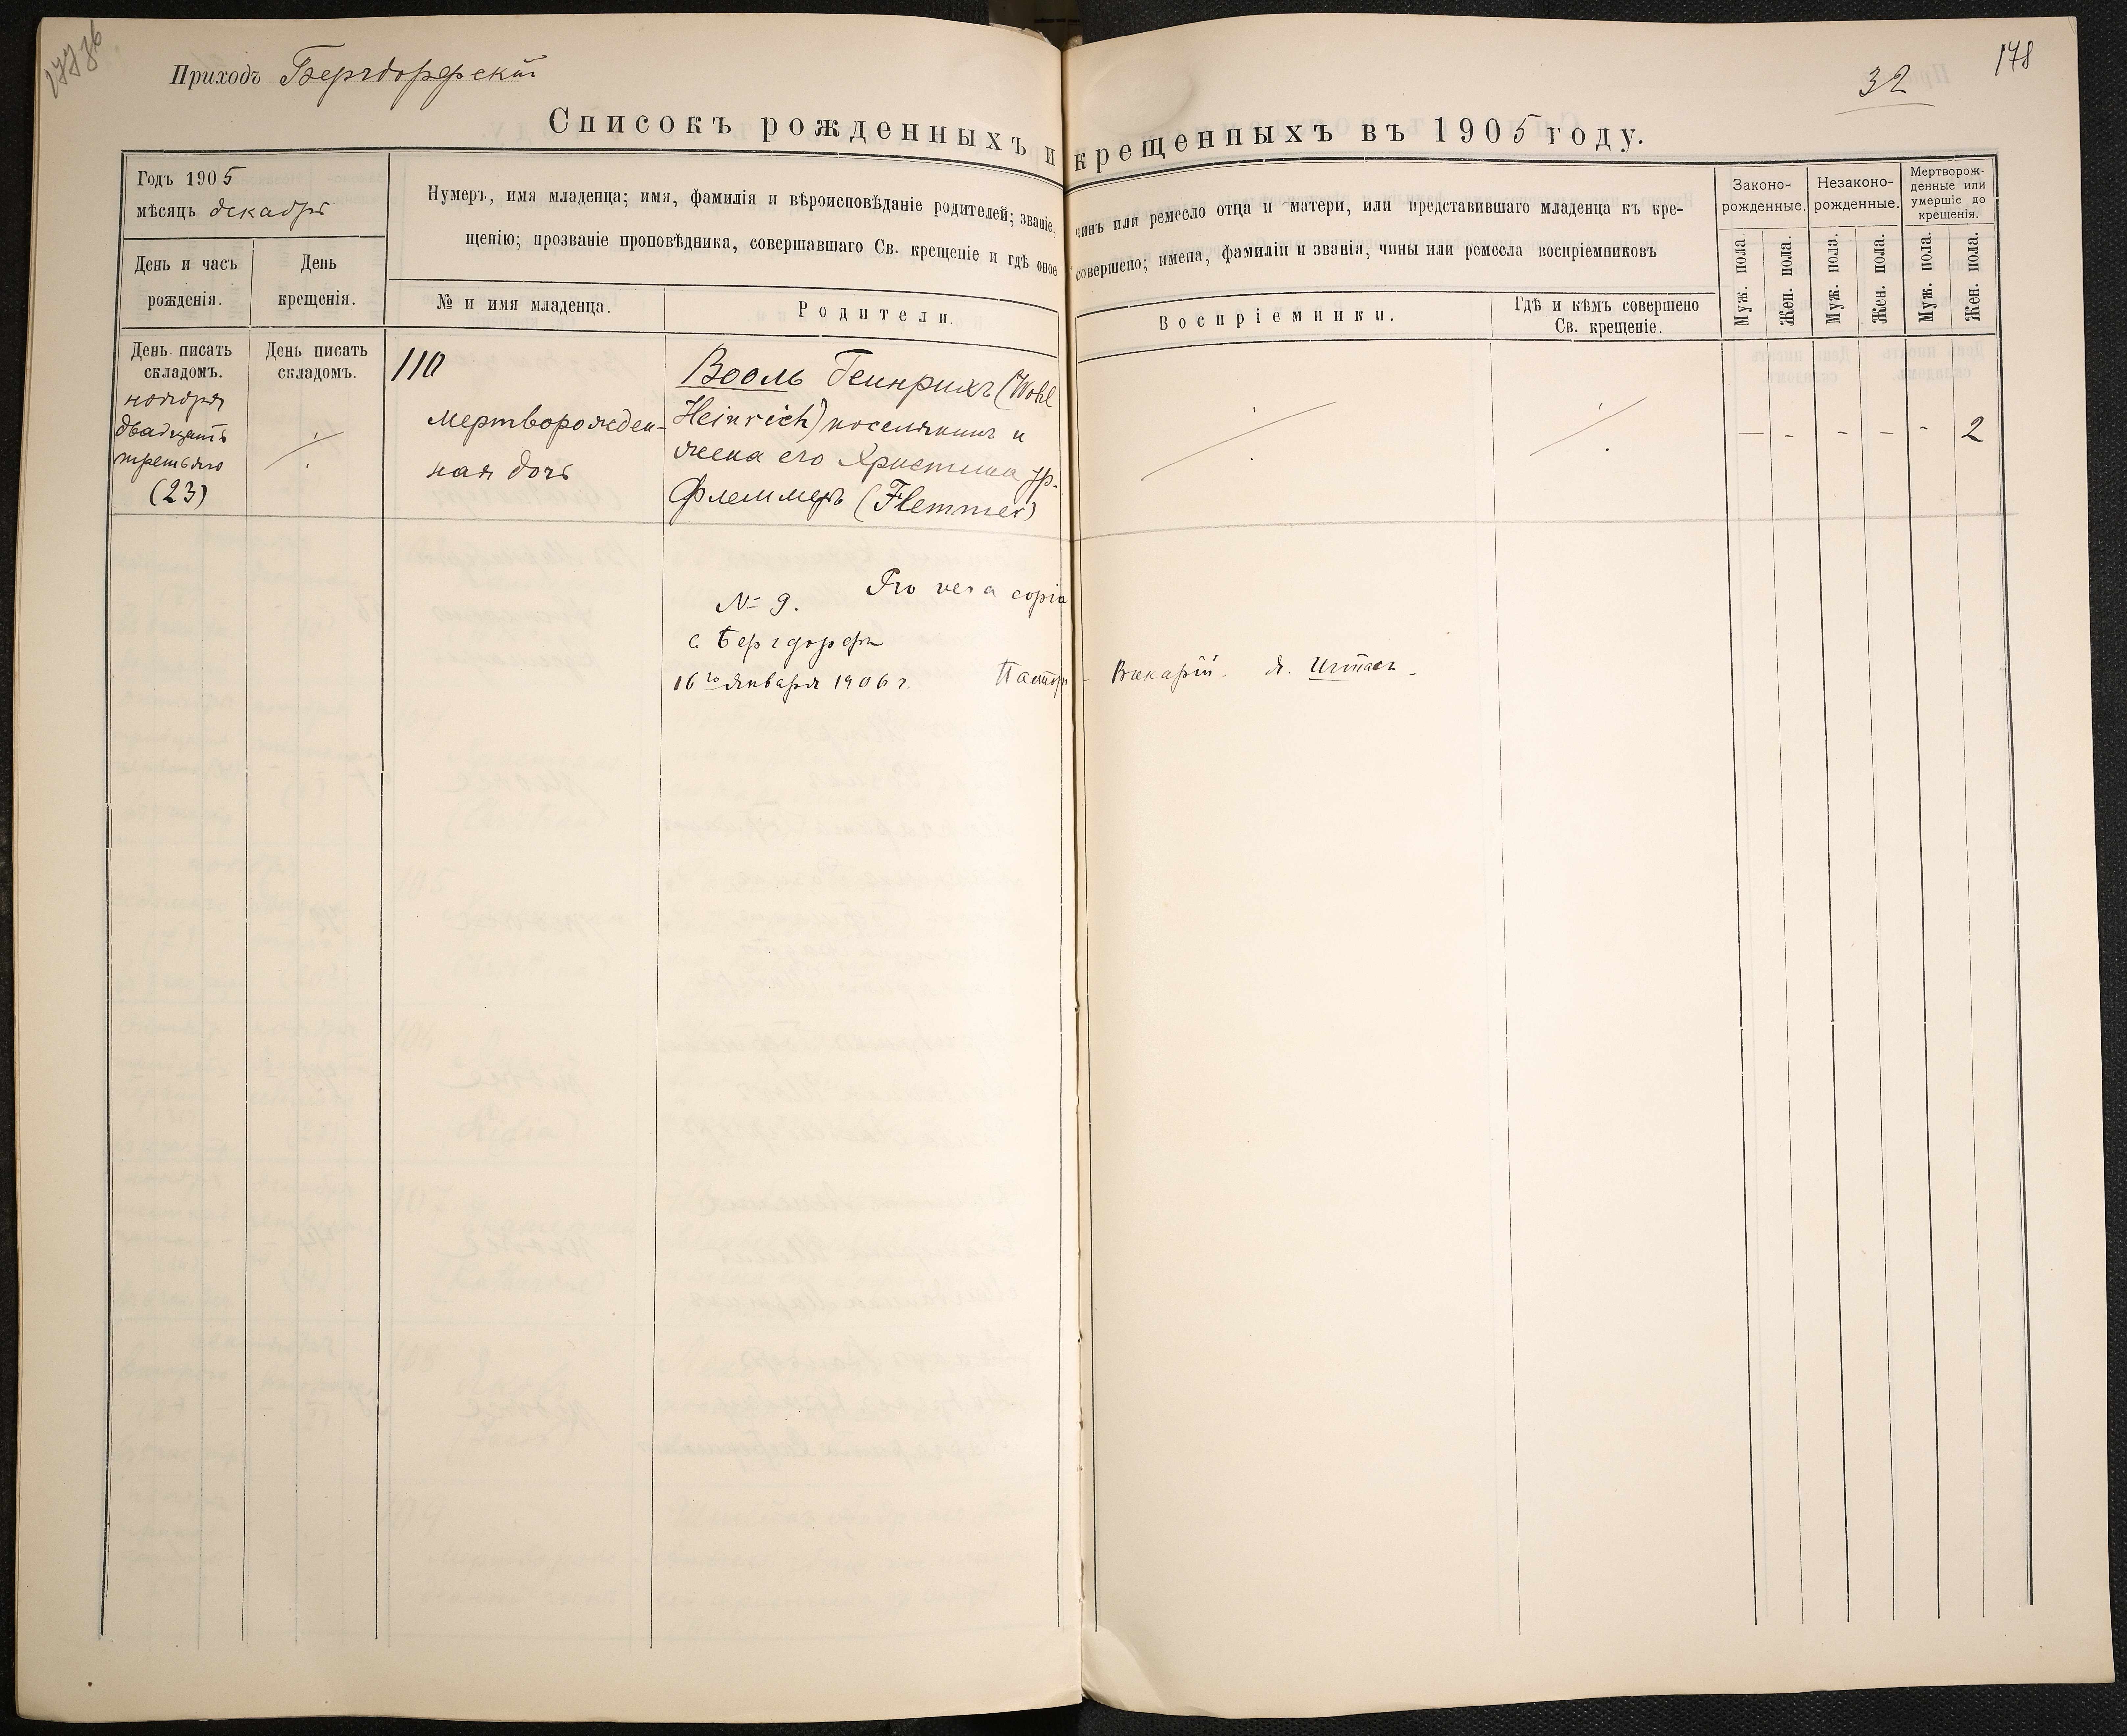 178
32
Приходъ Бергдорфскій
Списокъ рожденныхъ и крещенныхъ въ 1905 году.
Годъ 1905
мѣсяцъ декабрь
День и часъ
рожденія.
День
крещенія.
Нумеръ, имя младенца; имя, фамилія и вѣроисповѣданіе родителей; званіе, чинъ или ремесло отца и матери, или представившаго младенца къ кре-
щенію; прозваніе проповѣдника, совершавшаго Св. крещеніе и гдѣ оное совершено; имена, фамиліи и званія, чины или ремесла воспріемниковъ
№ и имя младенца.
Родители.
Воспріемники.
Гдѣ и кѣмъ совершено
Св. крещеніе.
Законо-
рожденные.
Незаконо-
рожденные.
Мертворож-
денные или
умершіе до
крещенія.
Муж. пола.
Жен. пола.
Муж. пола.
Жен. пола.
Муж. пола.
Жен. пола.
День писать
складомъ.
ноября
двадцать
третьяго
(23)
День писать
складомъ.
110
мертворожден-
ная дочь
Вооль Генрихъ (Wohl
Heinrich) поселянинъ и
жена его Христина ур.
Флеммеръ (Flemmer)
— - - - - 2
Pro vera copia
№ 9.
с. Бергдорфъ
16го января 1906 г.
Пасторъ - Викарій. Я.